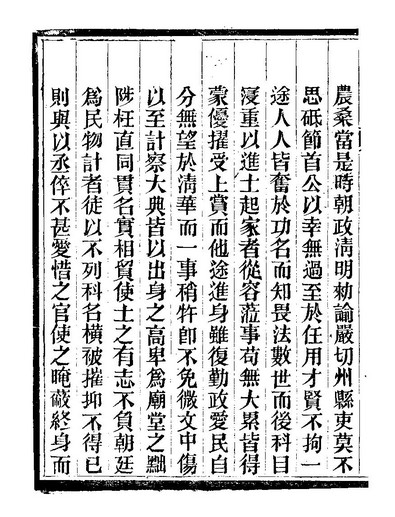 農桑當是時朝政淸明勑諭嚴切州縣吏莫不
思砥節首公以幸無過至於任用才賢不拘一
途人人皆奮於功名而知畏法數世而後科目
寖重以進士起家者從容蒞事苟無大累皆得
蒙優擢受上賞而他途進身雖復勤政愛民自
分無望於淸華而一事稍牾卽不免微文中傷
以至計察大典皆以出身之高卑爲廟堂之黜
陟枉直同貫名實相貿使士之有志不負朝廷
爲民物計者徒以不列科名橫被摧抑不得已
則與以丞倅不甚愛惜之官使之晻蔽終身而